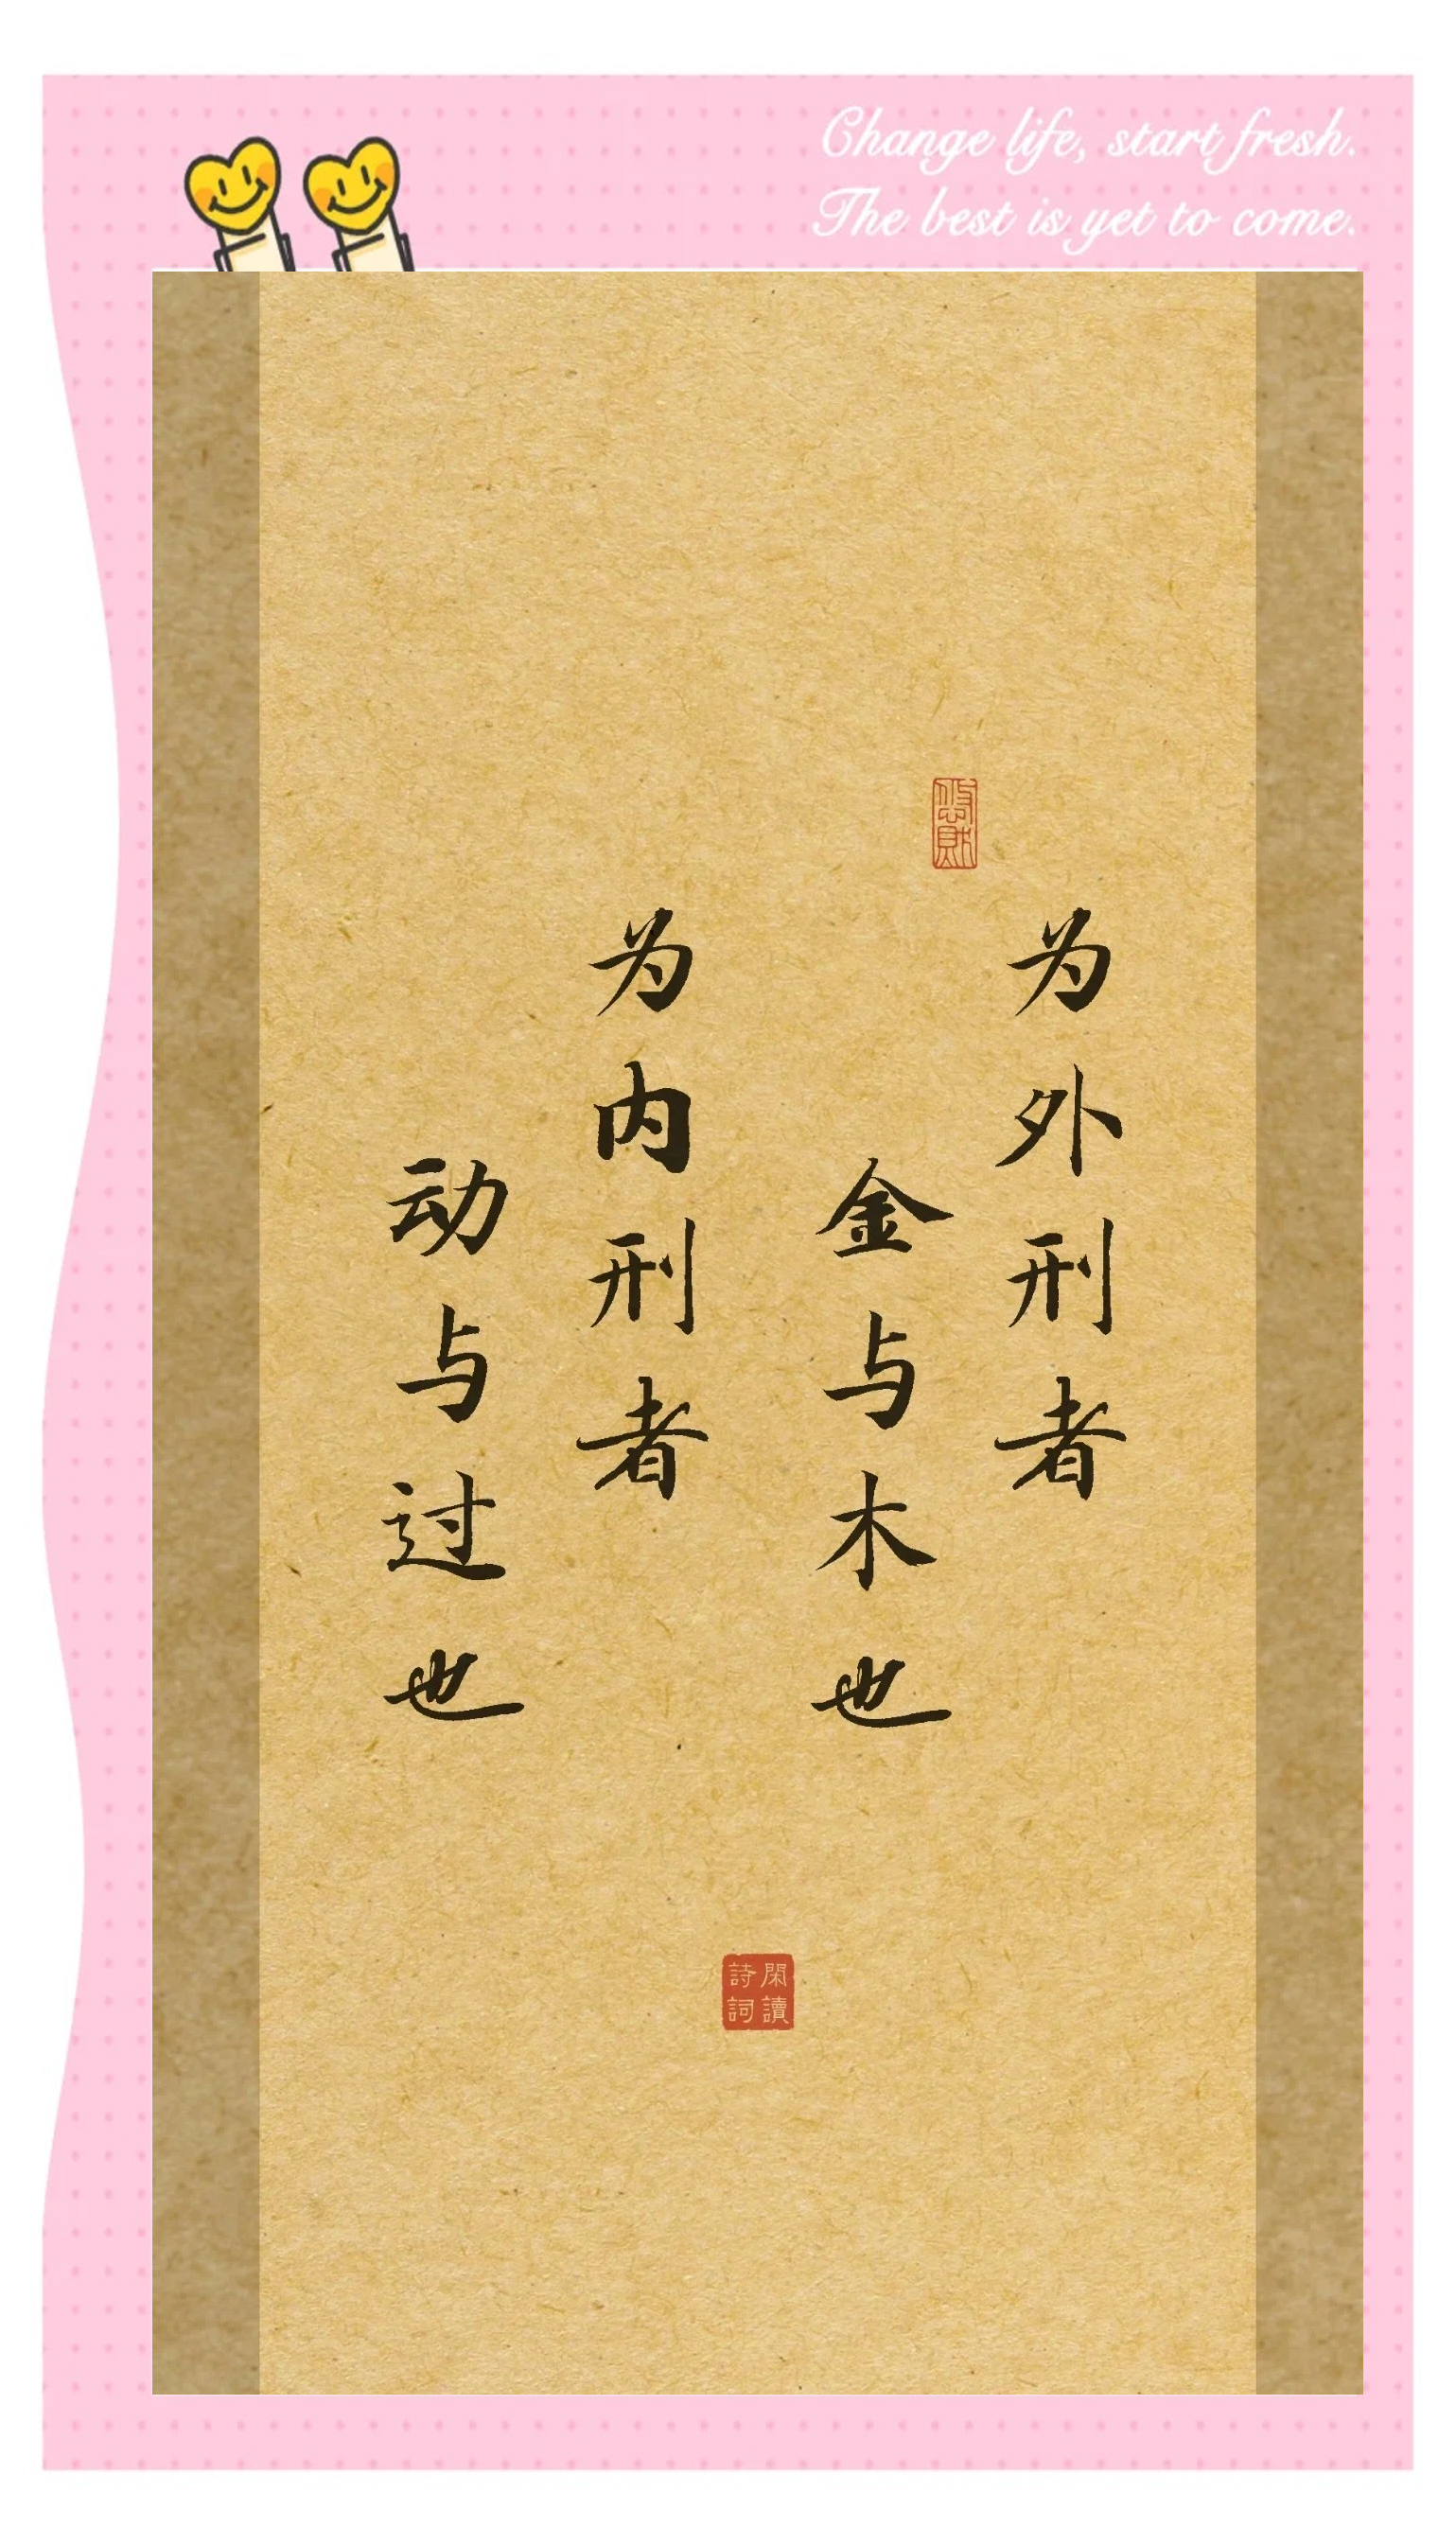 Change life, start fresh.
The best is yet to come.
为外刑者
金与木也
为内刑者
动与过也
閑讀
詩詞